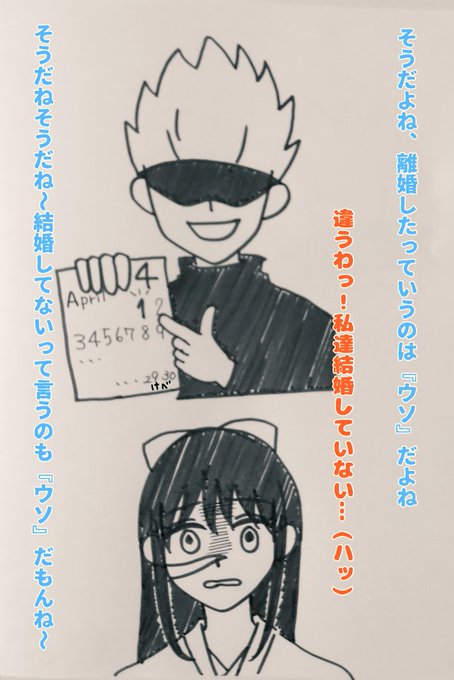 そうだよね、離婚したっていうのは『ウソ』だよね
違うわっ！私達結婚していない…（ハッ）
そうだねそうだね～結婚してないって言うのも『ウソ』だもんね～
4
April
1 2
3 4 5 6 7 8 9
...
... 29 30